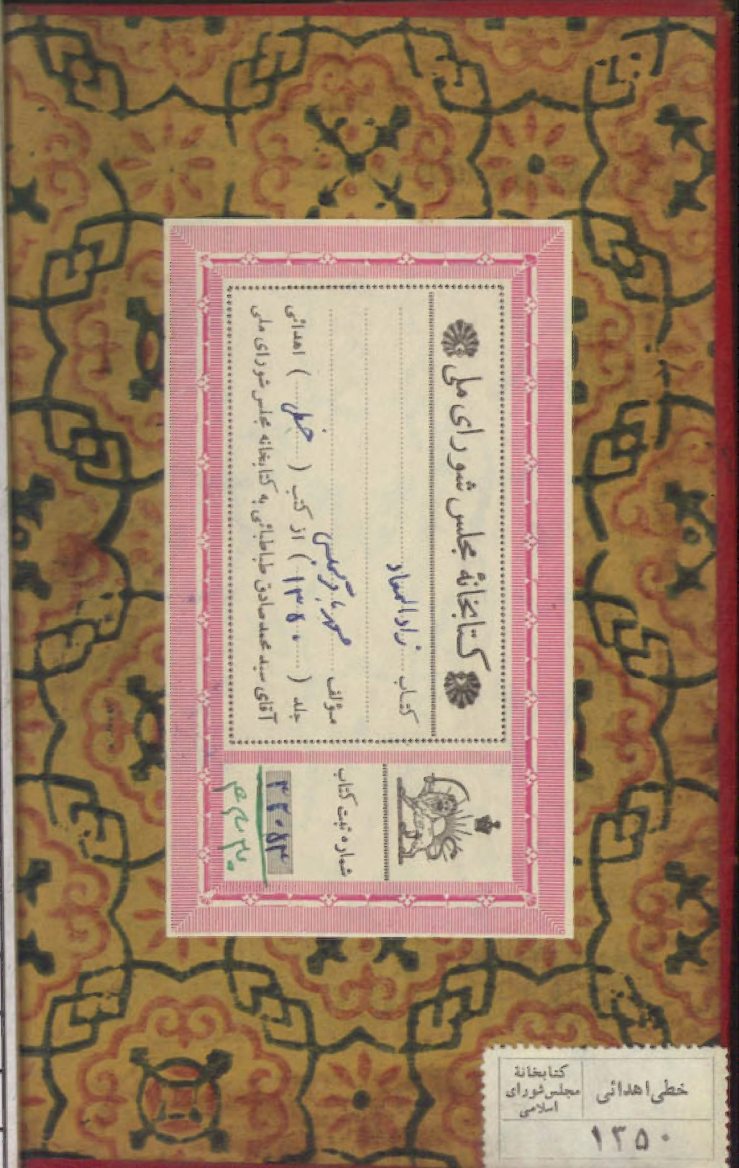 کتابخانهٔ مجلس شورای ملی
کتاب زاد المعاد
مؤلف محمد باقر مجلسی
جلد ( ۱۳۵۰ ) از کتب ( خطی ) اهدائی
آقای سید محمد صادق طباطبائی به کتابخانه مجلس شورای ملی
شماره ثبت کتاب
خطی اهدائی
کتابخانهٔ
مجلس شورای
اسلامی
۱۳۵۰